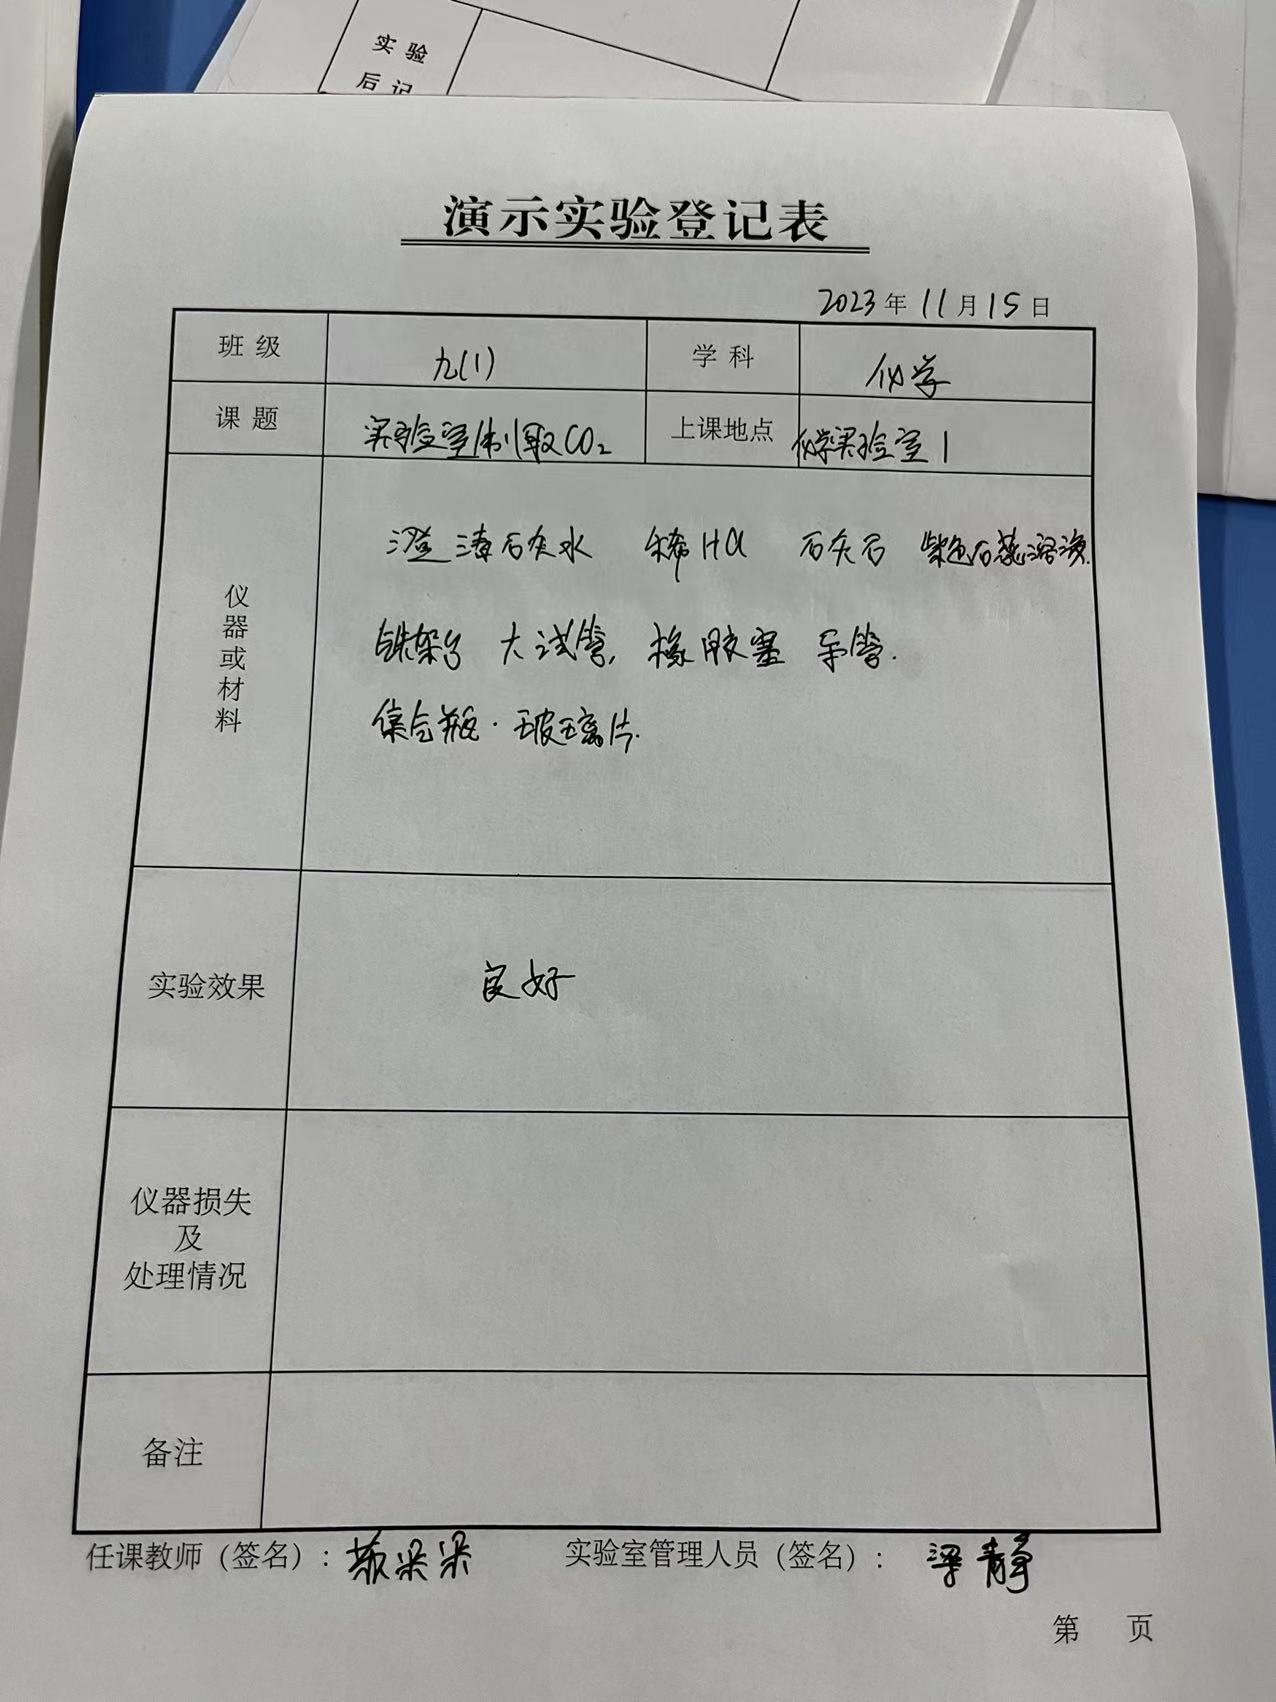 实验
后记
演示实验登记表
2023年11月15日
班级 九(1) 学科 化学
课题 实验室制取CO₂ 上课地点 化学实验室1
仪器或材料
澄清石灰水 稀HCl 石灰石 紫色石蕊溶液.
铁架台 大试管, 橡胶塞 导管.
集气瓶. 玻璃片.
实验效果 良好
仪器损失
及
处理情况
备注
任课教师（签名）: 实验室管理人员（签名）: 梁静
第 页